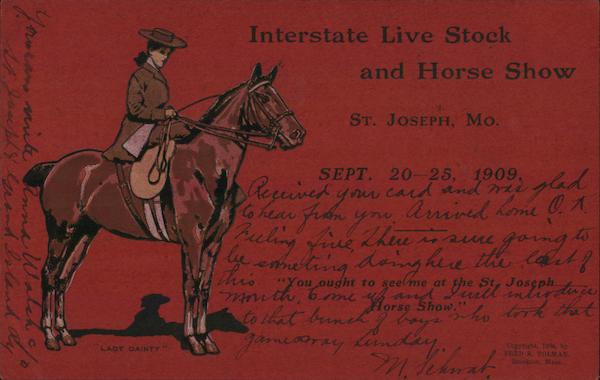 Interstate Live Stock
and Horse Show
St. Joseph, Mo.
SEPT. 20–25, 1909.
Received your card and was glad
to hear from you. Arrived home O.K.
Feeling fine. There is sure going to
be someting doing here the last of
this
"You ought to see me at the St. Joseph
month. Come up and I will introduce
Horse Show."
to that bunch of boys who took that
game away Sunday.
M. Schwab.
"LADY DAINTY"
Copyright, 1904, by
FRED S. TOLMAN,
Brockton, Mass.
Yours
c/o
St. Joseph & Grand Island Ry